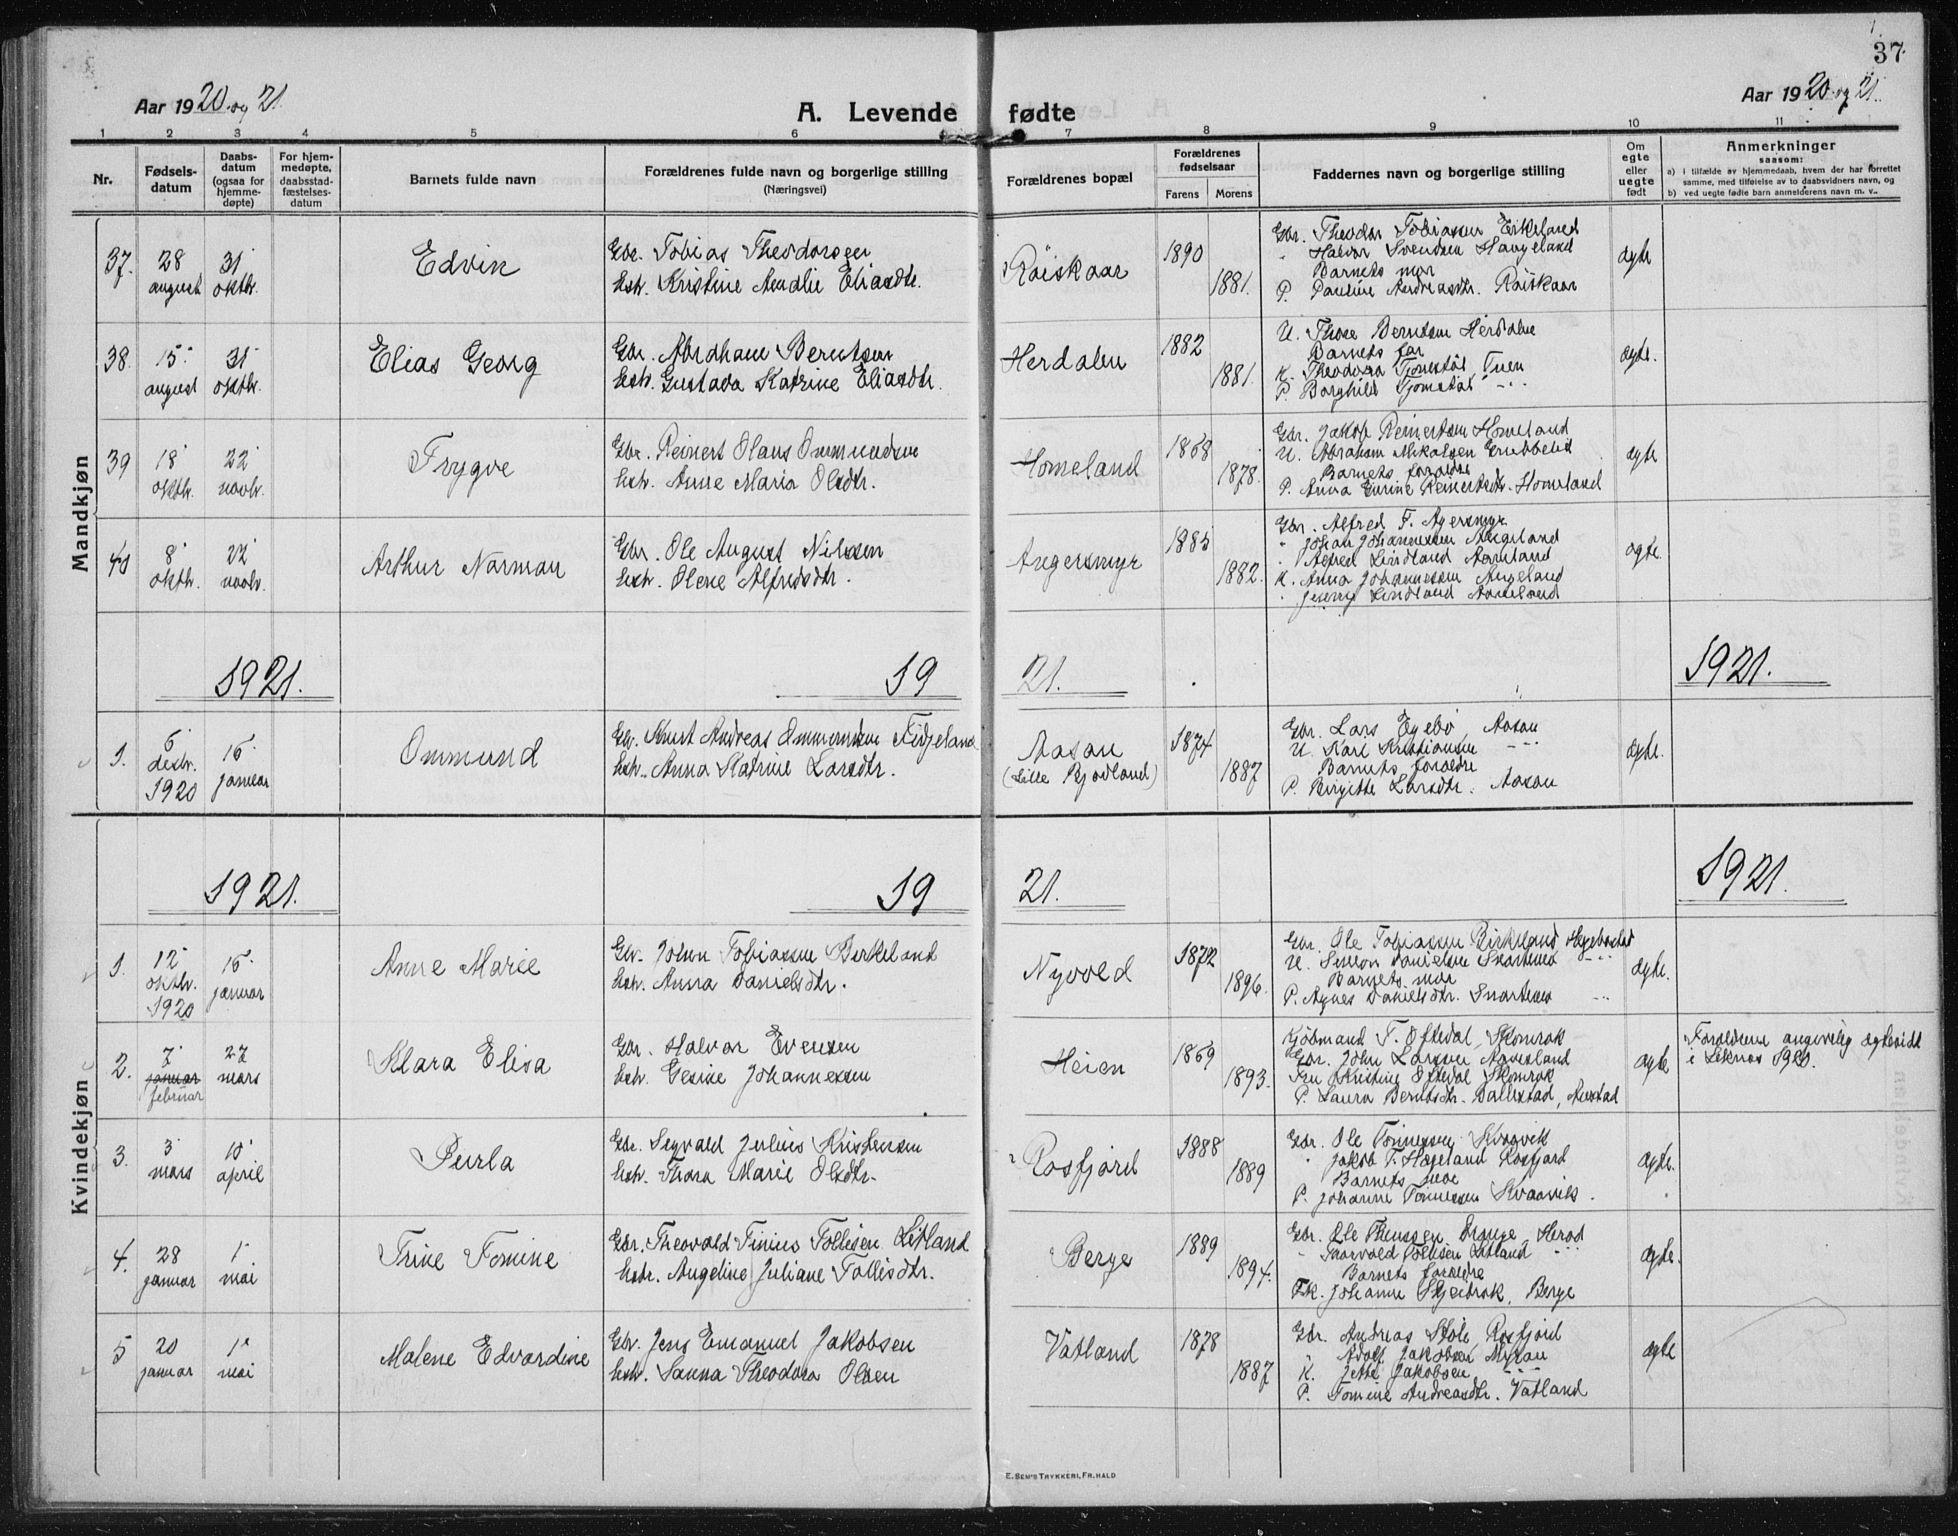 37
Aar 1920 og 21.
A. Levende fødte
Aar 1920 og 21.
1 2 3 4 5 6 7 8 9 10 11
Nr.
Fødsels-datum
Daabs-datum (ogsaa for hjemme-døpte)
For hjem-medøpte, daabsstad-fæstelses-datum
Barnets fulde navn
Forældrenes fulde navn og borgerlige stilling
(Næringsvei)
Forældrenes bopæl
Forældrenes fødselsaar
Farens Morens
Faddernes navn og borgerlige stilling
Om egte eller uegte født
Anmerkninger
saasom:
a) i tilfælde av hjemmedaab, hvem der har forrettet samme, med tilføielse av to daabsvidners navn, og
b) ved uegte fødte barn anmelderens navn m. v.
Mandkjøn
37. 28 august 31 oktbr. Edvin
Gbr. Tobias Theodorsen
Hstr. Kristine Amalie Eliasdtr.
Røiskaar 1890 1881.
Gbr. Theodor Tobiassen Eikeland
" Halvor Svendsen Haugeland
Barnets mor
P. Pauline Andreasdtr. Røiskaar
ægte
38. 15 august 31 oktbr. Elias Georg
Gbr. Abraham Berntsen
Hstr. Gustava Katrine Eliasdtr.
Herdalen 1882 1881.
U. Thore Berntsen Herdalen
Barnets far
K. Theodora Tjomstøl, Tuen
P. Borghild Tjomstøl " "
ægte.
39 18 oktbr. 22 novbr. Trygve
Gbr. Reinert Olaus Ommundsen
Hstr. Anne Maria Olsdtr.
Homeland 1868 1878.
Gbr. Jakob Reinertsen Homeland
U. Abraham Mikalsen Grubbelid
Barnets forældre
P. Anna Gurine Reinertsdtr. Homeland
ægte
40 8 oktbr. 22 novbr. Arthur Norman
Gbr. Ole August Nilssen
Hstr. Olene Alfredsdtr.
Angersmyr 1885 1882.
Gbr. Alfred F. Agersmyr
" Johan Johannessen Augeland
" Alfred Lindland Aameland
K. Anna Johannessen Augeland
" Jenny Lindland Aameland
ægte.
1921. 19 21. 1921.
1. 6 desbr. 1920 16 januar Ommund
Gbr. Knut Andreas Ommundsen Fidjeland
Hstr. Anna Katrine Larsdtr.
Aasan
(Lille Kjødland)
1874 1887
Gbr. Lars Egebø, Aasan
U. Karl Kristiansen " "
Barnets forældre
P. Birgitte Larsdtr. Aasan
ægte.
Kvindekjøn
1921. 19 21. 1921.
1. 12 oktbr. 1920 16 januar Anne Marie
Gbr. Johan Tobiassen Birkeland
Hstr. Anna Danielsdtr.
Nyvold 1872 1896.
Gbr. Ole Tobiassen Birkeland Hegebostad
U. Simon Danielsen Snartemo " "
Barnets mor
P. Agnes Danielsdtr. Snartemo " "
ægte.
2. 7 januar februar 27 mars Klara Elisa
Gbr. Halvor Evensen
Hstr. Gesine Johannessen
Heien 1869 1893.
Kjøbmand T. Oftedal, Skomrak
Gbr. John Larsen Aavesland
Fru Kristine Oftedal Skomrak
P. Laura Berntsdtr. Ballestad, Austad
ægte
Forældrene angivelig ægteviet
i Leknes 1920.
3. 3 mars 10 april Perla
Gbr. Sigvald Julius Kristensen
Hstr. Thora Marie Olsdtr.
Rosfjord 1888 1889
Gbr. Ole Tønnessen Kvaavik
" Jakob T. Hageland Rosfjord
Barnets mor
P. Johanne Tønnessen Kvaavik.
ægte.
4. 28 januar 1 mai Trine Tomine
Gbr. Theovald Tinius Tollisen Litland
Hstr. Angeline Juliane Tollisdtr.
Berge 1889 1894.
Gbr. Ole Thomassen Drange, Herad
" Taarvald Tollisen Litland " "
Barnets forældre
Fk. Johanne Skjeibrok, Berge
ægte.
5 20 januar 1 mai Malene Edvardine
Gbr. Jens Emanuel Jakobsen
Hstr. Sanna Theodora Olsen
Vatland 1878 1887
Gbr. Andreas Støle, Rosfjord
" Adolf Jakobsen Myran
K. Jette Jakobsen " "
P. Tomine Andreasdtr. Vatland
ægte
E. Sem's Trykkeri, Fr. hald